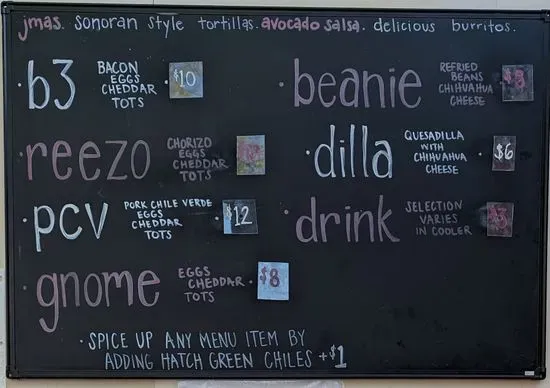 jmas. sonoran style tortillas. avocado salsa. delicious burritos.
· b3 BACON
EGGS
CHEDDAR
TOTS · $10
· reezo CHORIZO
EGGS
CHEDDAR
TOTS
· pcv PORK CHILE VERDE
EGGS
CHEDDAR
TOTS · $12
· gnome EGGS
CHEDDAR
TOTS · $8
· beanie REFRIED
BEANS
CHIHUAHUA
CHEESE
· dilla QUESADILLA
WITH
CHIHUAHUA
CHEESE · $6
· drink SELECTION
VARIES
IN COOLER
· SPICE UP ANY MENU ITEM BY
ADDING HATCH GREEN CHILES +$1